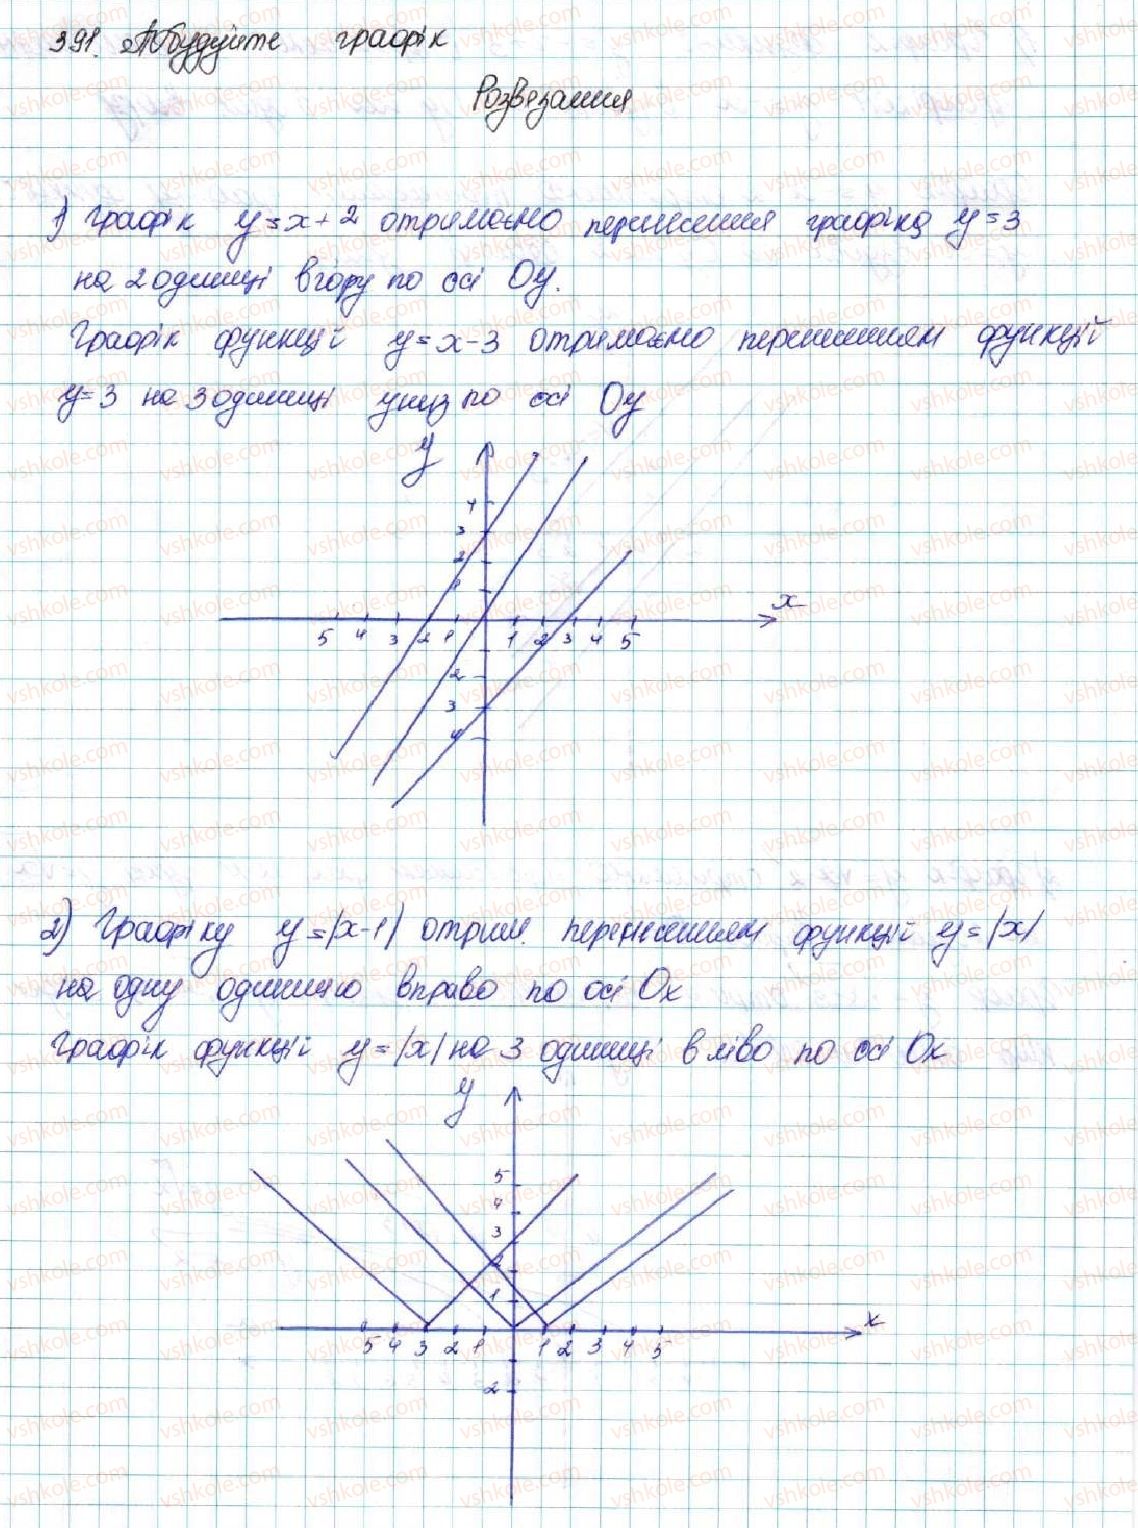 391. Побудуйте графік
Розвязання
1) Графік y = x + 2 отримаємо перенесення графіка y = 3
на 2 одиниці вгору по осі Oy.
Графік функцій y = x - 3 отримаємо перенесенням функцій
y = 3 на 3 одиниці униз по осі Oy
y
4
3
2
1
x
5 4 3 2 1 1 2 3 4 5
2
3
4
2) Графіку y = |x - 1| отрим. перенесенням функцій y = |x|
на одну одиницю вправо по осі Ox
Графік функцій y = |x| на 3 одиниці вліво по осі Ox
y
5
4
3
2
1
x
5 4 3 2 1 1 2 3 4 5
2